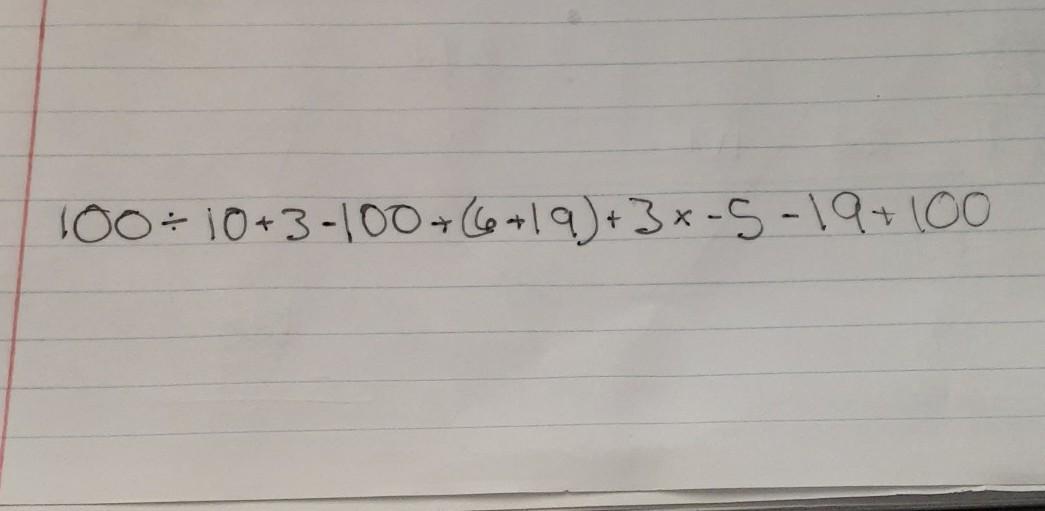 100÷10+3-100+(6+19)+3x-5-19+100